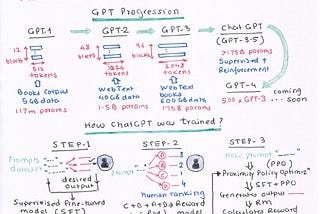 GPT Progression
GPT-1
GPT-2
GPT-3
Chat GPT
(GPT-3.5)
12
blocks
48
blocks
96
blocks
>175B params
Supervised +
Reinforcement
512
tokens
1024
tokens
2048
tokens
Books corpus
5GB data
WebText
40GB data
WebText
books
600GB data
GPT-4
coming
500 x GPT-3 ... soon
117m params
1.5B params
175B params
How ChatGPT was Trained?
STEP-1
STEP-2
STEP-3
Prompts
dataset
desired
output
Supervised Fine-tuned
model (SFT)
prompt
A
B
C
D
human ranking
C > D > A > B
Reward
model
new prompt
(PPO)
Proximity Policy Optimizn
SFT + PPO
Generates output
RM
Calculates Reward